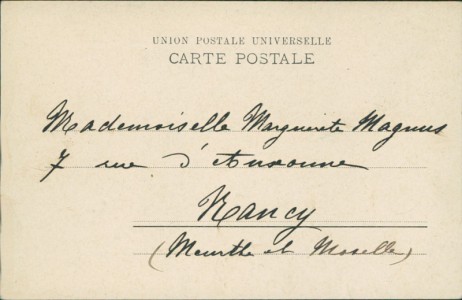 UNION POSTALE UNIVERSELLE
CARTE POSTALE
Mademoiselle Marguerite Magnus
7 rue d'Auxonne
Nancy
(Meurthe et Moselle)